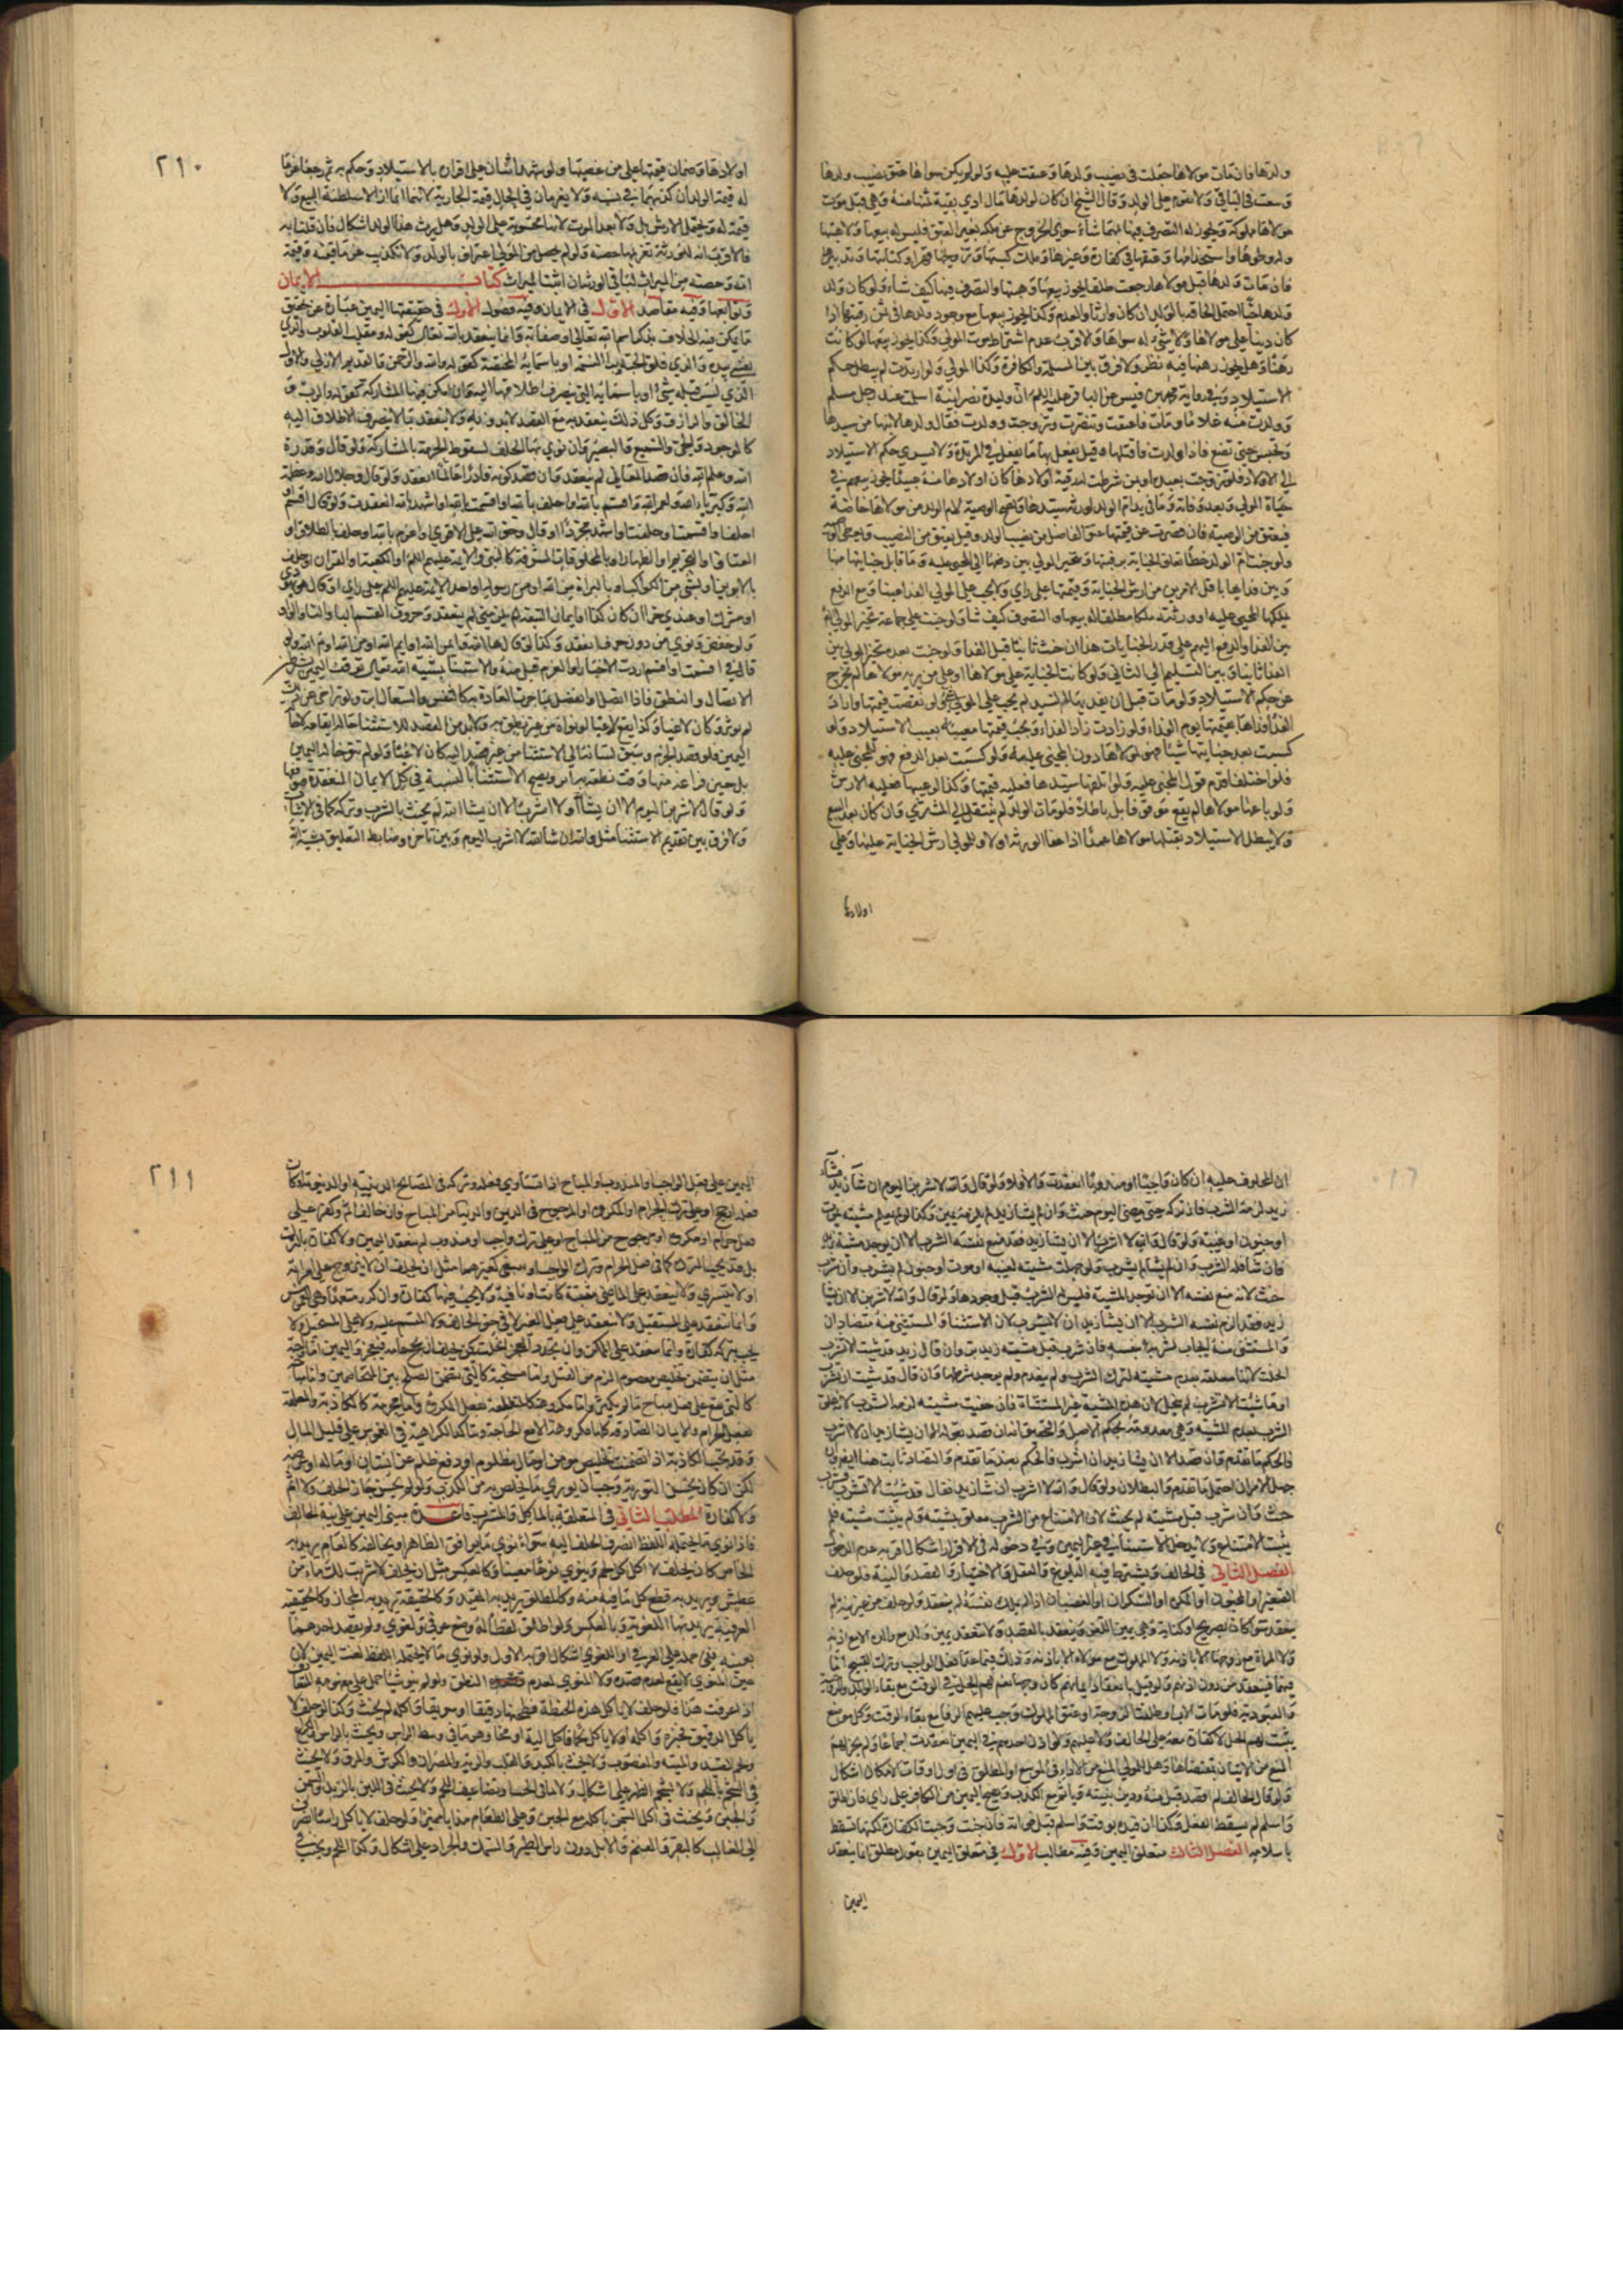 ولدها فان مات مولاها جعلت في نصيب ولدها وعتقت عليه ولو لم يكن سواها عتق نصيب ولدها
وسعت في الباقي ولا تقوم على الولد وقال الشيخ ان كان لولدها مال ادي بقية ثمنها منه وهي قبل موت
مولاها مملوكة ويجوز له التصرف فيها مهما شاء سوى الخروج عن ملكه بغير العتق فليس له بيعها ولا هبتها
وله وطؤها واستخدامها وعتقها في كفارة وغيرها وملك كسبها وتزويجها قهرا وكتابتها وتدبيرها
فان مات ولدها قبل مولاها رجعت طلقا يجوز بيعها وهبتها والتصرف فيها كيف شاء ولو كان ولد
ولدها حيا احتمل الحاقه بالولد ان كان وارثا والعدم وكذا يجوز بيعها مع وجود ولدها في ثمن رقبتها اذا
كان دينا على مولاها ولا شيء له سواها والاقرب عدم اشتراط موت المولى وكذا يجوز بيعها لو كانت
رهنا وهل يجوز رهنها فيه نظر ولا فرق بين المسلمة والكافرة وكذا المولى ولو ارتدت لم يبطل حكم
الاستيلاد وفي رواية محمد بن قيس عن الباقر عليه السلم ان وليدة نصرانية اسلمت عند رجل مسلم
وولدت منه غلاما ومات فاعتقت وتنصرت وتزوجت وولدت فقال ولدها لابنها من سيدها
وتحبس حتى تضع فاذا ولدت فاقتلها وقيل يفعل بها ما يفعل في المرتدة ولا يسري حكم الاستيلاد
الى الاولاد فلو تزوجت بعبد او بمن شرطت له رقية اولادها كان اولادها منه عبيدا يجوز بيعهم في
حياة المولى وبعد وفاته وما في يد ام الولد لورثة سيدها وتصح الوصية لام الولد من مولاها خاصة
فيعتق من الوصية فان قصرت عن قيمتها عتق الفاضل من نصيب الولد وقيل يعتق من النصيب وتعطى الوصية
ولو جنت ام الولد خطأ تعلق الجناية برقبتها وتخير المولى بين دفعها الى المجني عليه او ما قابل جنايتها منها
وبين فدائها باقل الامرين من ارش الجناية وقيمتها على راي ولا يجب على المولى الفداء عينا ومع الدفع
يملكها المجني عليه او ورثته ملكا مطلقا له بيعها والتصرف كيف شاء ولو جنت على جماعة تخير المولى
بين الفداء والدفع اليهم على قدر الجنايات هذا ان جنت ثانيا قبل الفداء ولو جنت بعده تخير المولى بين
الفداء ثانيا وبين التسليم الى الثاني ولو كانت الجناية على مولاها او على من يرثه مولاها لم تخرج
عن حكم الاستيلاد ولو ماتت قبل ان يفديها السيد لم يجب على المولى شيء ولو نقصت قيمتها واراد
الفداء فداها بقيمتها يوم الفداء ولو زادت زاد الفداء ويجب قيمتها معيبة بعيب الاستيلاد ولو
كسبت بعد جنايتها شيئا فهو لمولاها دون المجني عليه ولو كسبت بعد الدفع فهو للمجني عليه
فلو اختلفا قدم قول المجني عليه ولو اتلفها سيدها فعليه قيمتها وكذا لو عيبها فعليه الارش
ولو باعها مولاها لم يقع موقوفا بل باطلا فلو مات الولد لم ينتقل الى المشتري وان كان بعد البيع
ولا يبطل الاستيلاد بقتلها مولاها عمدا اذا عفا الورثة او لا وللمولى ارش الجناية عليها وعلى
اولادها
٢١٠
اولادها وضمان قيمتها على من غصبها ولو شهد اثنان على اقراره بالاستيلاد وحكم به ثم رجعا غرما
له قيمة الولد ان كذبهما في نسبه ولا يغرمان في الحال قيمة الجارية لانهما انما ازالا سلطنة البيع ولا
قيمة له ويحتمل الارش بل ولا بعد الموت لانها محسوبة على الولد وهل يرث هذا الولد اشكال فان قلنا به
فالاقرب انه للورثة تغريمهما حصته ولو لم يحصل من المولى اعتراف بالولد ولا تكذيب غرما قيمته وقيمة
امه وحصته من الميراث لباقي الورثة ان اثبتنا الميراث كتاب الايمان
وتوابعها وفيه مقاصد الاول في الايمان وفيه فصول الاول في حقيقتها اليمين عبارة عن تحقيق
ما يمكن فيه الخلاف بذكر اسم الله تعالى او صفاته وانما ينعقد بالله تعالى كقوله ومقلب القلوب والذي
نفسي بيده والذي فلق الحبة وبرأ النسمة او باسمائه المختصة كقوله والله والرحمن والقديم والازلي والاول
الذي ليس قبله شيء او باسمائه التي ينصرف اطلاقها اليه وان امكن فيها المشاركة كقوله والرب و
الخالق والرازق وكل ذلك ينعقد به مع القصد لا بدونه ولا ينعقد بما لا ينصرف الاطلاق اليه
كالموجود والحي والسميع والبصير وان نوى بها الحلف لسقوط الحرمة بالمشاركة ولو قال وقدرة
الله وعلم الله فان قصد المعاني لم ينعقد وان قصد كونه قادرا عالما انعقد ولو قال وجلال الله وعظمة
الله وكبرياء الله ولعمر الله واقسم بالله واحلف بالله او اقسمت بالله او اشهد بالله انعقدت ولو قال اقسم او
احلف او اقسمت او حلفت او اشهد مجردا او قال وحق الله على الاقوى او اعزم بالله او حلف بالطلاق او
العتاق او التحريم او الظهار او بالمخلوقات المشرفة كالنبي والائمة عليهم السلم او الكعبة او القران او حلف
بالابوين او بشيء من الكواكب او بالبراءة من الله او من رسوله او احد الائمة عليهم السلم على راي او قال هو يهودي
او مشرك او عبدي حر ان كان كذا او ايمان البيعة لم يلزمني لم ينعقد وحروف القسم الباء والتاء والواو
ولو خفض ونوى من دون حرف انعقد وكذا لو قال ها الله وايمن الله او ايم الله او من الله او م الله ولو
قال في اقسمت او اقسم اردت الاخبار او العزم قبل منه والاستثناء بمشية الله تعالى توقف اليمين بشرط
الاتصال والنطق فاذا اتصل او انفصل بما جرت العادة به كالتنفس والسعال اثر ولو تراخى عن ذلك
لم يوثر وكان لاغيا وكذا يقع لاغيا لو نواه من غير نطق به ولا بد من القصد للاستثناء حالة ايقاعه لا حال
اليمين فلو قصد الجزم وسبق لسانه الى الاستثناء من غير قصد اليه كان لاغيا ولو لم ينو حالة اليمين
بل حين فراغه منها وقت نطقه به اثر ويصح الاستثناء بالمشية في كل الايمان المنعقدة فيوقفها
ولو قال لاشربن اليوم الا ان يشاء الله او لا اشرب الا ان يشاء الله لم يحنث بالشرب وتركه كما في الاثبات
ولا فرق بين تقديم الاستثناء مثل والله ان شاء الله لا اشرب اليوم وبين تاخره وضابط التعليق بمشية الله
ان المحلوف عليه ان كان واجبا او مندوبا انعقدت والا فلا ولو قال والله لاشربن اليوم ان شاء زيد فشاء
زيد لزمه الشرب فان تركه حتى مضى اليوم حنث وان لم يشأ زيد لم يلزمه يمين وكذا لو لم يعلم مشيته بموت
او جنون او غيبة ولو قال والله لا اشرب الا ان يشاء زيد فقد منع نفسه الشرب الا ان يوجد مشية زيد
فان شاء فله الشرب وان لم يشأ لم يشرب ولو جهلت مشيته لغيبة او موت او جنون لم يشرب وان شرب
حنث لانه منع نفسه الا ان توجد المشية فليس له الشرب قبل وجودها ولو قال والله لاشربن الا ان يشاء
زيد فقد الزم نفسه الشرب الا ان يشاء زيد ان لا يشرب لان الاستثناء والمستثنى منه متضادان
والمستثنى منه ايجاب لشربه بيمينه فان شرب قبل مشية زيد بر وان قال زيد قد شئت ان لا تشرب
انحلت لانها معلقة بعدم مشيته لترك الشرب ولم يعدم ولم يوجد شرطها وان قال قد شئت ان تشرب
او ما شئت ان لا تشرب لم تنحل لان هذه المشية غير المستثناة فان خفيت مشيته لزمه الشرب لانه علق
الشرب بعدم المشية وهي معدومة بحكم الاصل والتحقيق انه ان قصد بقوله الا ان يشاء زيد ان لا اشرب
فالحكم ما تقدم وان قصد الا ان يشاء زيد ان اشرب فالحكم بعد ما تقدم والتضاد ثابت هنا ايضا وان
جهل الامران احتمل ما تقدم والبطلان ولو قال والله لا اشرب ان شاء زيد فقال قد شئت ان لا تشرب فشرب
حنث وان شرب قبل مشيته لم يحنث لان الامتناع من الشرب معلق بمشيته ولم يثبت مشيته فلم
يثبت الامتناع ولا يدخل الاستثناء في غير اليمين وفي دخوله في الاقرار اشكال اقربه عدم الدخول
الفصل الثاني في الحالف ويشترط فيه البلوغ والعقل والاختيار والقصد والنية فلو حلف
الصغير او المجنون او المكره او السكران او الغضبان اذا لم يملك نفسه لم ينعقد ولو حلف من غير نية لم
ينعقد سواء كان بصريح او كناية وهي يمين اللغو وينعقد بالقصد ولا تنعقد يمين ولد مع والده الا مع اذنه
ولا المراة مع زوجها الا باذنه ولا المملوك مع مولاه الا باذنه وذلك فيما عدا فعل الواجب وترك القبيح اما
فيهما فينعقد من دون اذنهم ولو قيل بانعقاد ايمانهم كان وجها نعم لهم الحل في الوقت مع بقاء الوالد والزوجية
والعبودية فلو مات الاب او طلقت الزوجة او عتق المملوك وجب عليهم الوفاء مع بقاء الوقت وكل موضع
يثبت لهم الحل لا كفارة معه على الحالف ولا عليهم ولو اذن احدهم في اليمين انعقدت اجماعا ولم يجز لهم
المنع من الاتيان بمقتضاها وهل للمولى المنع من الاداء في الموسع او المطلق في اول اوقات الامكان اشكال
ولو قال الحالف لم اقصد قبل منه ودين بنيته وياثم مع الكذب ويصح اليمين من الكافر على راي فان اطلق
واسلم لم يسقط الفعل وكذا ان قيده بوقت واسلم قبل فواته فان حنث وجبت الكفارة ولكنها تسقط
باسلامه الفصل الثالث متعلق اليمين وفيه مطالب الاول في متعلق اليمين بقول مطلق انما ينعقد
اليمين
٢١١
اليمين على فعل الواجب او المندوب او المباح اذا تساوى فعله وتركه في المصالح الدينية او الدنيوية او كان
فعله ارجح او على ترك الحرام او المكروه او المرجوح في الدين والدنيا من المباح فان خالف اثم وكفر ولو حلف على
فعل حرام او مكروه او مرجوح من المباح او على ترك واجب او مندوب لم ينعقد اليمين ولا كفارة بالترك
بل قد يجب الترك كما في فعل الحرام وترك الواجب او ينبغي كغيرهما مثل ان يحلف ان لا يتزوج على امراته
او لا يتسرى ولا ينعقد على الماضي مثبتة كانت او نافية ولا يجب فيها كفارة وان كذب متعمدا وهي الغموس
وانما تنعقد على المستقبل ولا تنعقد على فعل الغير لا في حق الحالف ولا المقسم عليه ولا على المستحيل ولا
يجب بتركه كفارة وانما ينعقد على الممكن وان تجدد العجز انحلت كمن يحلف ان يحج عامه فيعجز واليمين اما واجبة
مثل ان يتضمن تخليص معصوم الدم من القتل واما مستحبة كالتي تتضمن الصلح بين المتخاصمين واما مباحة
كالتي تقع على فعل مباح او تركه واما مكروهة كالمتعلقة بفعل المكروه واما محرمة كالكاذبة والمتعلقة
بفعل الحرام والايمان الصادقة كلها مكروهة الا مع الحاجة ويتاكد الكراهية في الغموس على قليل المال
وقد تجب الكاذبة اذا تضمنت تخليص مومن او مال مظلوم او دفع ظلم عن انسان او ماله او عرضه
لكن ان كان يحسن التورية وجب ان يوري ما يخلص به من الكذب ولو لم يحسن جاز الحلف ولا اثم
ولا كفارة المطلب الثاني في المتعلقة بالماكل والمشرب قاعدة مبنى اليمين على نية الحالف
فاذا نوى ما يحتمله اللفظ انصرف الحلف اليه سواء نوى ما يوافق الظاهر او يخالفه كالعام يريد به
الخاص كان يحلف لا اكل كل لحم وينوي نوعا معينا وكالعكس مثل ان يحلف لا شربت لك ماء من
عطش ويريد به قطع كل ما فيه منة وكالمطلق يريد به المقيد وكالحقيقة يريد به المجاز وكالحقيقة
العرفية يريد بها اللغوية وبالعكس ولو اطلق لفظا له وضع عرفي ولغوي ولم يقصد احدهما
بعينه ففي حمله على العرفي او اللغوي اشكال اقربه الاول ولو نوى ما لا يحتمله اللفظ لغت اليمين لان
غير المنوي لا يقع لعدم قصده ولا المنوي لعدم النطق ولو لم ينو شيئا حمل على مفهومه المتعارف
اذا عرفت هذا فلو حلف لا ياكل هذه الحنطة فطحنها دقيقا او سويقا فاكله لم يحنث وكذا لو حلف لا
ياكل الدقيق فخبزه واكله او لا ياكل لحما فاكل الية او مخا وهو ما في وسط الراس ويحنث بالراس والكارع
ولحم الصيد والميتة والمغصوب ولا يحنث بالكبد والقلب والرية والمصران والكرش والمرق ولا يحنث
في الشحم باللحم ولا بشحم الظهر على اشكال ولا بما في الحشايا وتضاعيف اللحم ولا يحنث في اللبن بالزبد والسمن
والجبن ويحنث في اكل السمن باكله مع الجبن وعلى الطعام مذابا متميزا ولو حلف لا ياكل راسا انصرف
الى الغالب كالبقر والغنم والابل دون راس الطير والسمك والجراد على اشكال وكذا اللحم ويحنث في